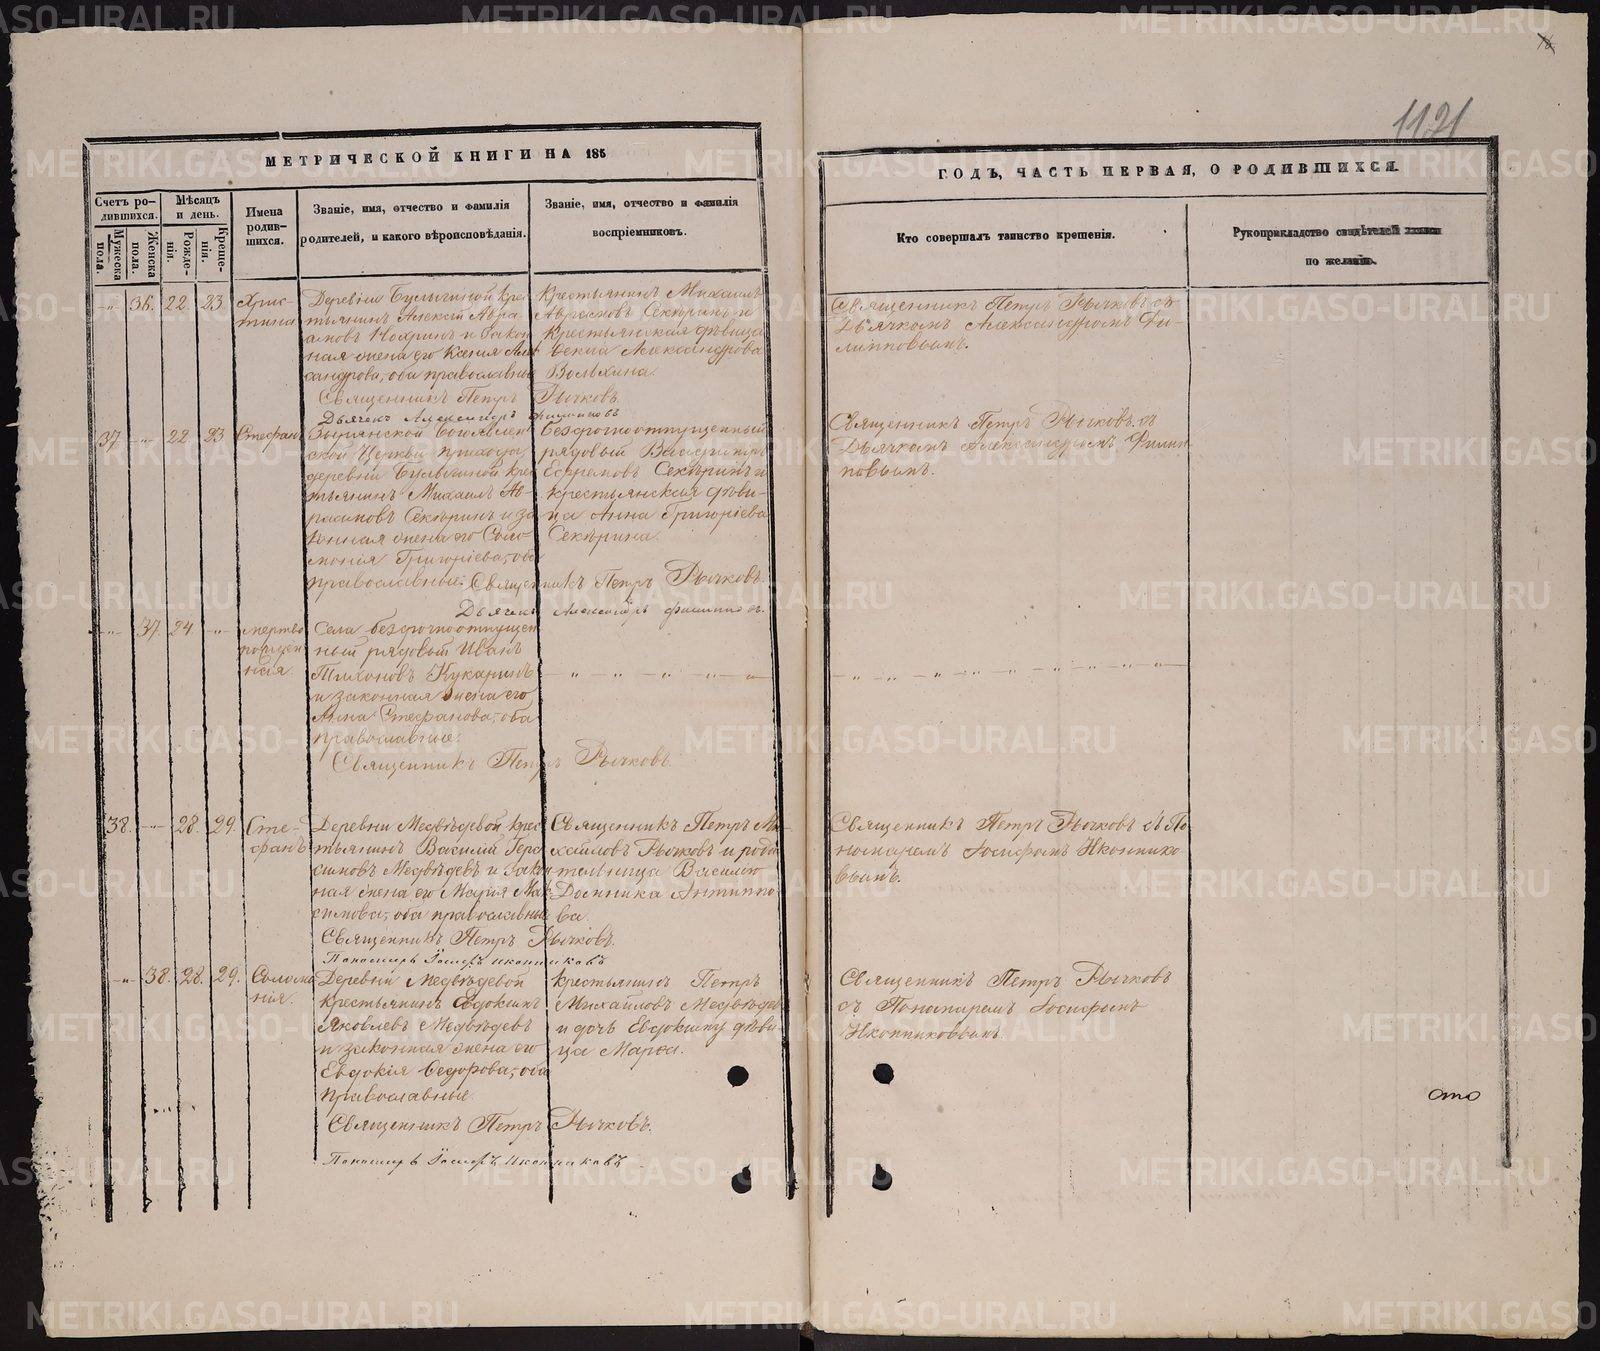 1121
МЕТРИЧЕСКОЙ КНИГИ НА 185
ГОДЪ, ЧАСТЬ ПЕРВАЯ, О РОДИВШИХСЯ.
Счетъ родившихся.
Мужеска пола.
Женска пола.
Мѣсяцъ и день.
Рожденія.
Крещенія.
Имена родившихся.
Званіе, имя, отчество и фамилія
родителей, и какого вѣроисповѣданія.
Званіе, имя, отчество и фамилія
воспріемниковъ.
Кто совершалъ таинство крещенія.
Рукоприкладство свидѣтелей записи
по желанію.
-„- 36. 22 23 Хрис-
тина
Деревни Булычиной кре
тьянинъ Алексій Авра
амовъ и закон
ная жена его Ксенія Алек
сандрова, оба православные
Священникъ Петръ Рычковъ.
Дьячекъ Александръ Филиповъ
Крестьянинъ Михаилъ
Секѣринъ и
Крестьянская дѣвица
Ѳекла Александрова
Священникъ Петръ Рычковъ съ
Дьячкомъ Александромъ Фи-
липповымъ.
37 -„- 22 23 Стефанъ
Богоявлен
ской Церкви прихода,
деревни Булычиной крес
тьянинъ Михаилъ Ав-
рамовъ Секѣринъ и за
конная жена его Соло
монія Григоріева, оба
православные. Священникъ Петръ Рычковъ.
Дьячекъ Александръ Филиповъ.
Безсрочноотпущенный
рядовый
Ефремовъ Секѣринъ и
крестьянская дѣви-
ца Анна Григоріева
Секѣрина.
Священникъ Петръ Рычковъ съ
Дьячкомъ Александромъ Филип
повымъ.
-„- 37. 24. -„- мертво
рожден
ная
Села безсрочноотпущен
ный рядовый Иванъ
Тихоновъ Кукаринъ
и законная жена его
Анна Стефанова, оба
православные.
Священникъ Петръ Рычковъ.
38. -„- 28. 29. Сте-
фанъ
Деревни Медвѣдевой крес
тьянинъ Василій Гера
симовъ Медвѣдевъ и закон
ная жена его Марія Мак
симова, оба православные
Священникъ Петръ Рычковъ.
Пономарь Іосифъ Иконниковъ
Священникъ Петръ Ми-
хайловъ Рычковъ и роди
тельница Василію
Домника Антипо
ва
Священникъ Петръ Рычковъ съ По
номаремъ Іосифомъ Иконнико
вымъ.
-„- 38. 28. 29. Соломо
нія.
Деревни Медвѣдевой
крестьянинъ Евдокимъ
Яковлевъ Медвѣдевъ
и законная жена его
Евдокія Ѳедорова, оба
православные
Священникъ Петръ Рычковъ.
Пономарь Іосифъ Иконниковъ
крестьянинъ Петръ
Михайловъ Медвѣдев
и дочь Евдокиму дѣви
ца Марѳа.
Священникъ Петръ Рычковъ
съ Пономаремъ Іосифомъ
Иконниковымъ.